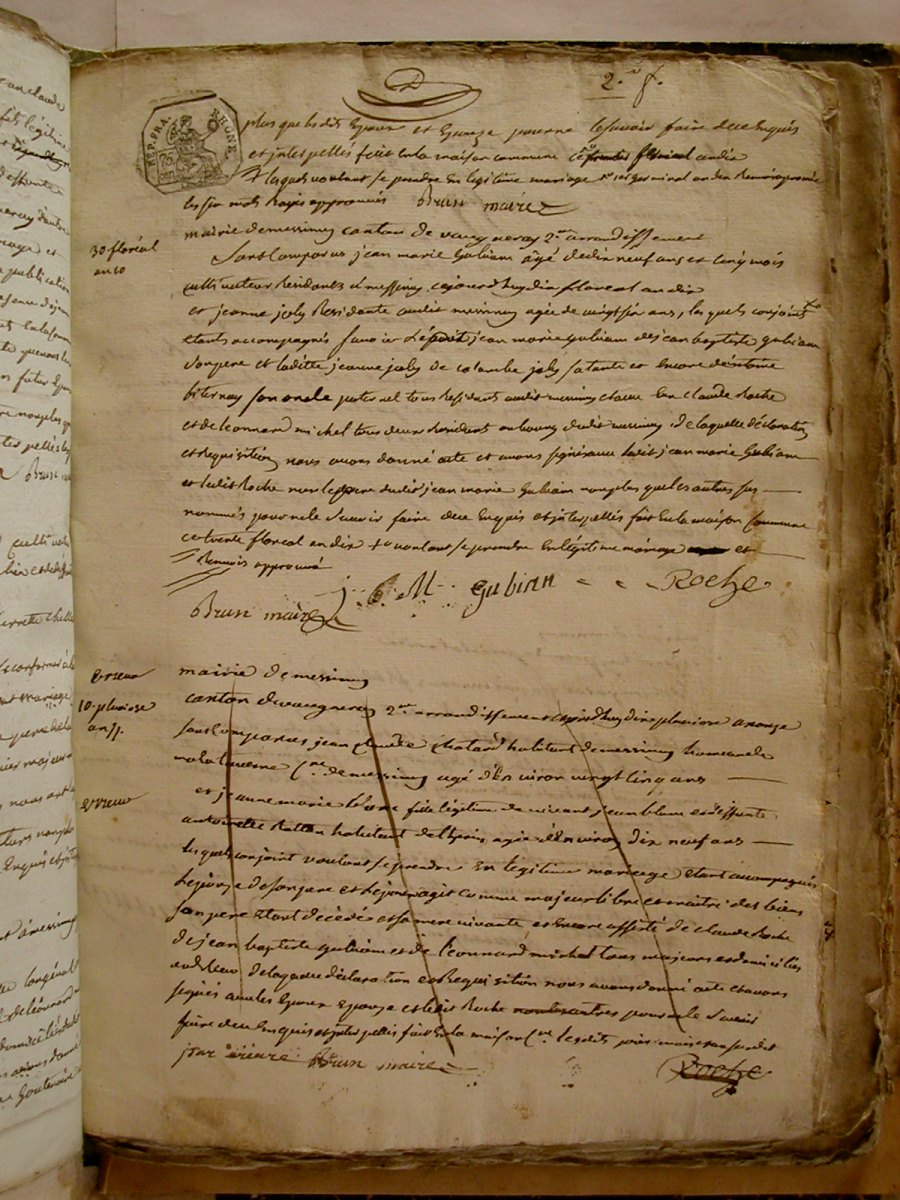 2.e f.
REP. FRA. RHONE
75
plus que lesdits Epoux et Epouse pour ne le savoir faire de ce Enquis
et interpellés fait En la maison commune floreal an dix
lesquels voulant se prendre En legitime mariage germinal an dix
les six mots Rayés approuvés Brun maire
mairie de messimy canton de vaugneray 2.e arrondissement
30 floréal
an 10
Sont Comparus jean marie Gubian agé de dix neuf ans et cinq mois
cultivateur Residant a messimy cejourd'huy dix floreal an dix
et jeanne joly Residante audit messimy agée de vingt six ans, lesquels conjoints
etants accompagnés savoir ledit jean marie Gubian de jean baptiste gubian
son pere et laditte jeanne joly de colombe joly sa tante et Encore d'étienne
biternay son oncle paternel tous Residants audit messimy claude Roche
et de leonnard michel tous deux Residants au bourg dudit messimy de laquelle déclaration
et Requisition nous avons donné acte et avons signé avec ledit jean marie Gubian
et ledit Roche non le pere dudit jean marie Gubian non plus que les autres sus
nommés pour ne le savoir faire de ce Enquis et interpellés fait En la maison Commune
ce trente floreal an dix + voulant se prendre En légitime mariage et
Renvois approuvé
J. M. Gubian Roche
Brun maire
Erreur
mairie de messimy
10. pluviose
an 11.
canton de vaugneray 2.e arrondissement cejourd'huy dix pluviose an onze
sont Comparus jean Claude Chatard habitant de messimy
C.ne de messimy agé d'En viron vingt cinq ans
Erreur
et jeanne marie blanc fille légitime de vivant jean blanc et deffunte
antoinette habitant agée d'En viron dix neuf ans
lesquels conjoint voulant se prendre En legitime mariage etant accompagnés
l'epouse de son pere et l'epoux agit comme majeur libre et maitre des biens
son pere Etant décédé et sa mere vivante et Encore assisté de claude Roche
de jean baptiste gubian et de Léonnard michel tous majeurs et domiciliés
audit lieu de laquelle déclaration et Requisition nous avons donné acte et avons
signés avec les Epoux Epouse et ledit Roche non les autres pour ne le Savoir
faire de ce Enquis et interpellés fait En la maison C.ne lesdits jour mois et an susdit
Brun maire Roche